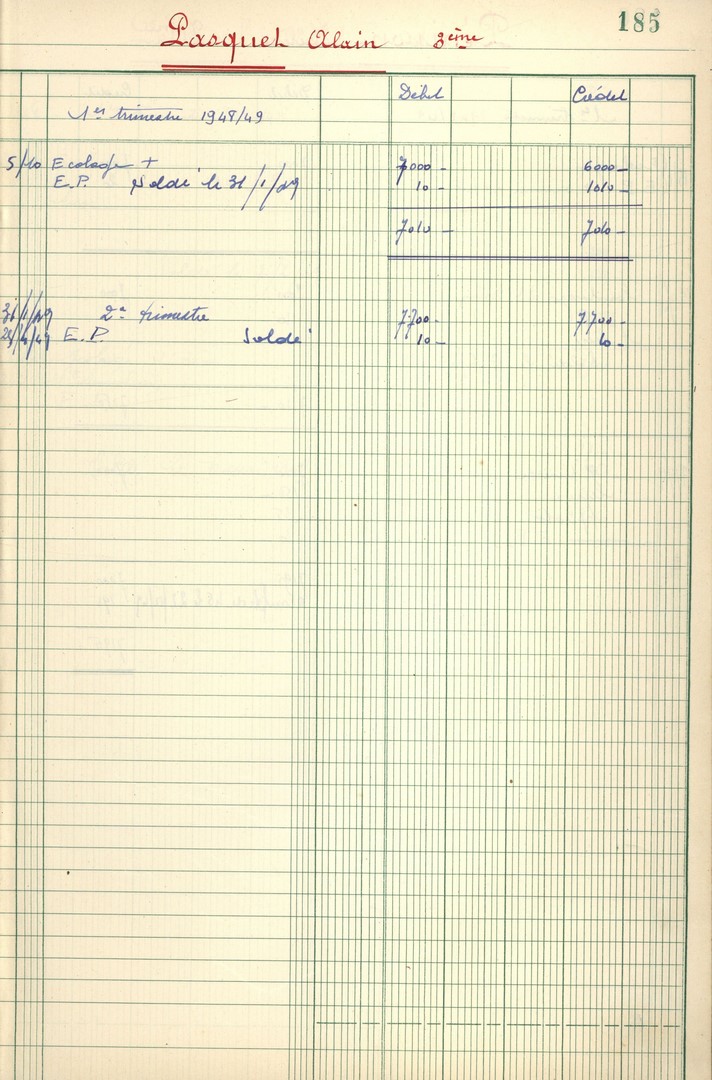 185
Pasquet Alain 3ème
Débit Crédit
1er trimestre 1948/49
5/10 Ecolage + 7000 - 6000 -
E.P. Soldé le 31/1/49 10 - 1010 -
7010 - 7010 -
31/1/49 2e trimestre 7.700 - 7.700 -
E.P. Soldé 10 - 10 -